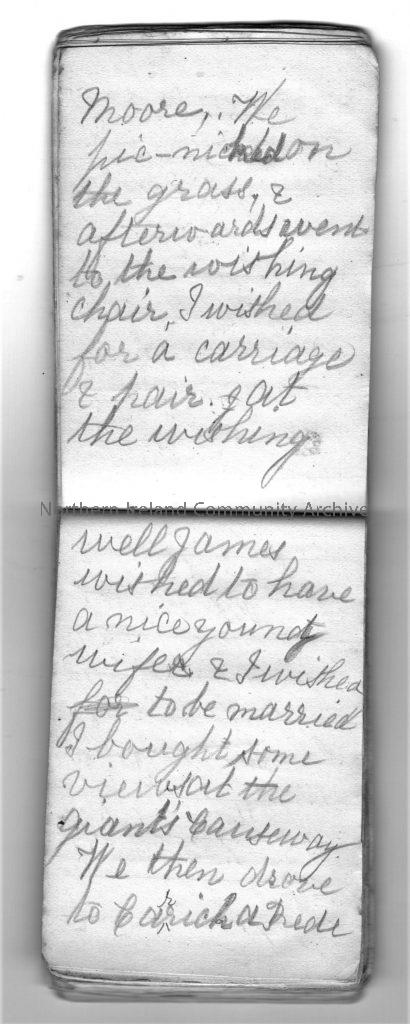 Moore, . We
pic-nicked on
the grass, &
afterwards went
to the wishing
chair, I wished
for a carriage
& pair. & at
the wishing
Northern Ireland Community Archive
well James
wished to have
a nice young
wife & I wished
for to be married
I bought some
views at the
giant's Causeway
We then drove
to Carrick a Rede